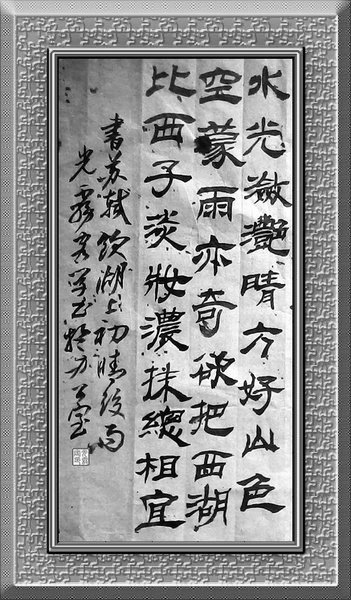 水光瀲灩晴方好山色
空蒙雨亦奇欲把西湖
比西子淡妝濃抹總相宜
書苏軾饮湖上初晴後雨
光